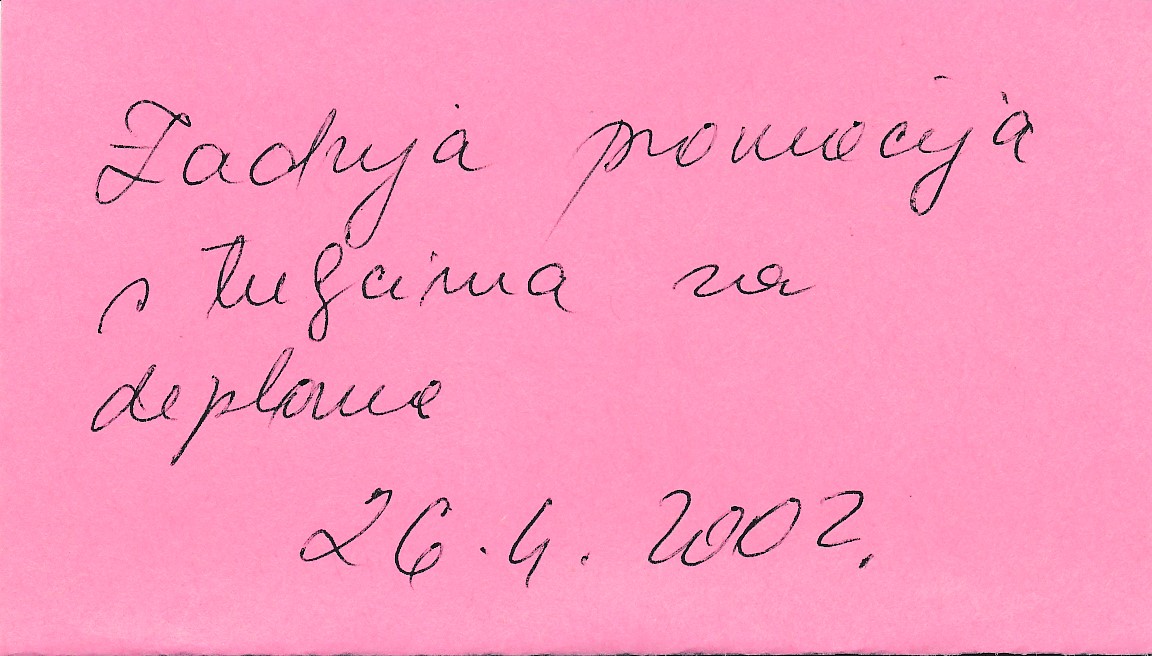 Zadnja promocija
s tuljcima za
diplome
26.4.2002.